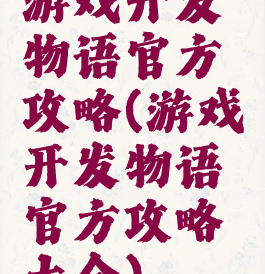 游戏开发
物语官方
攻略(游戏
开发物语
官方攻略
大全)